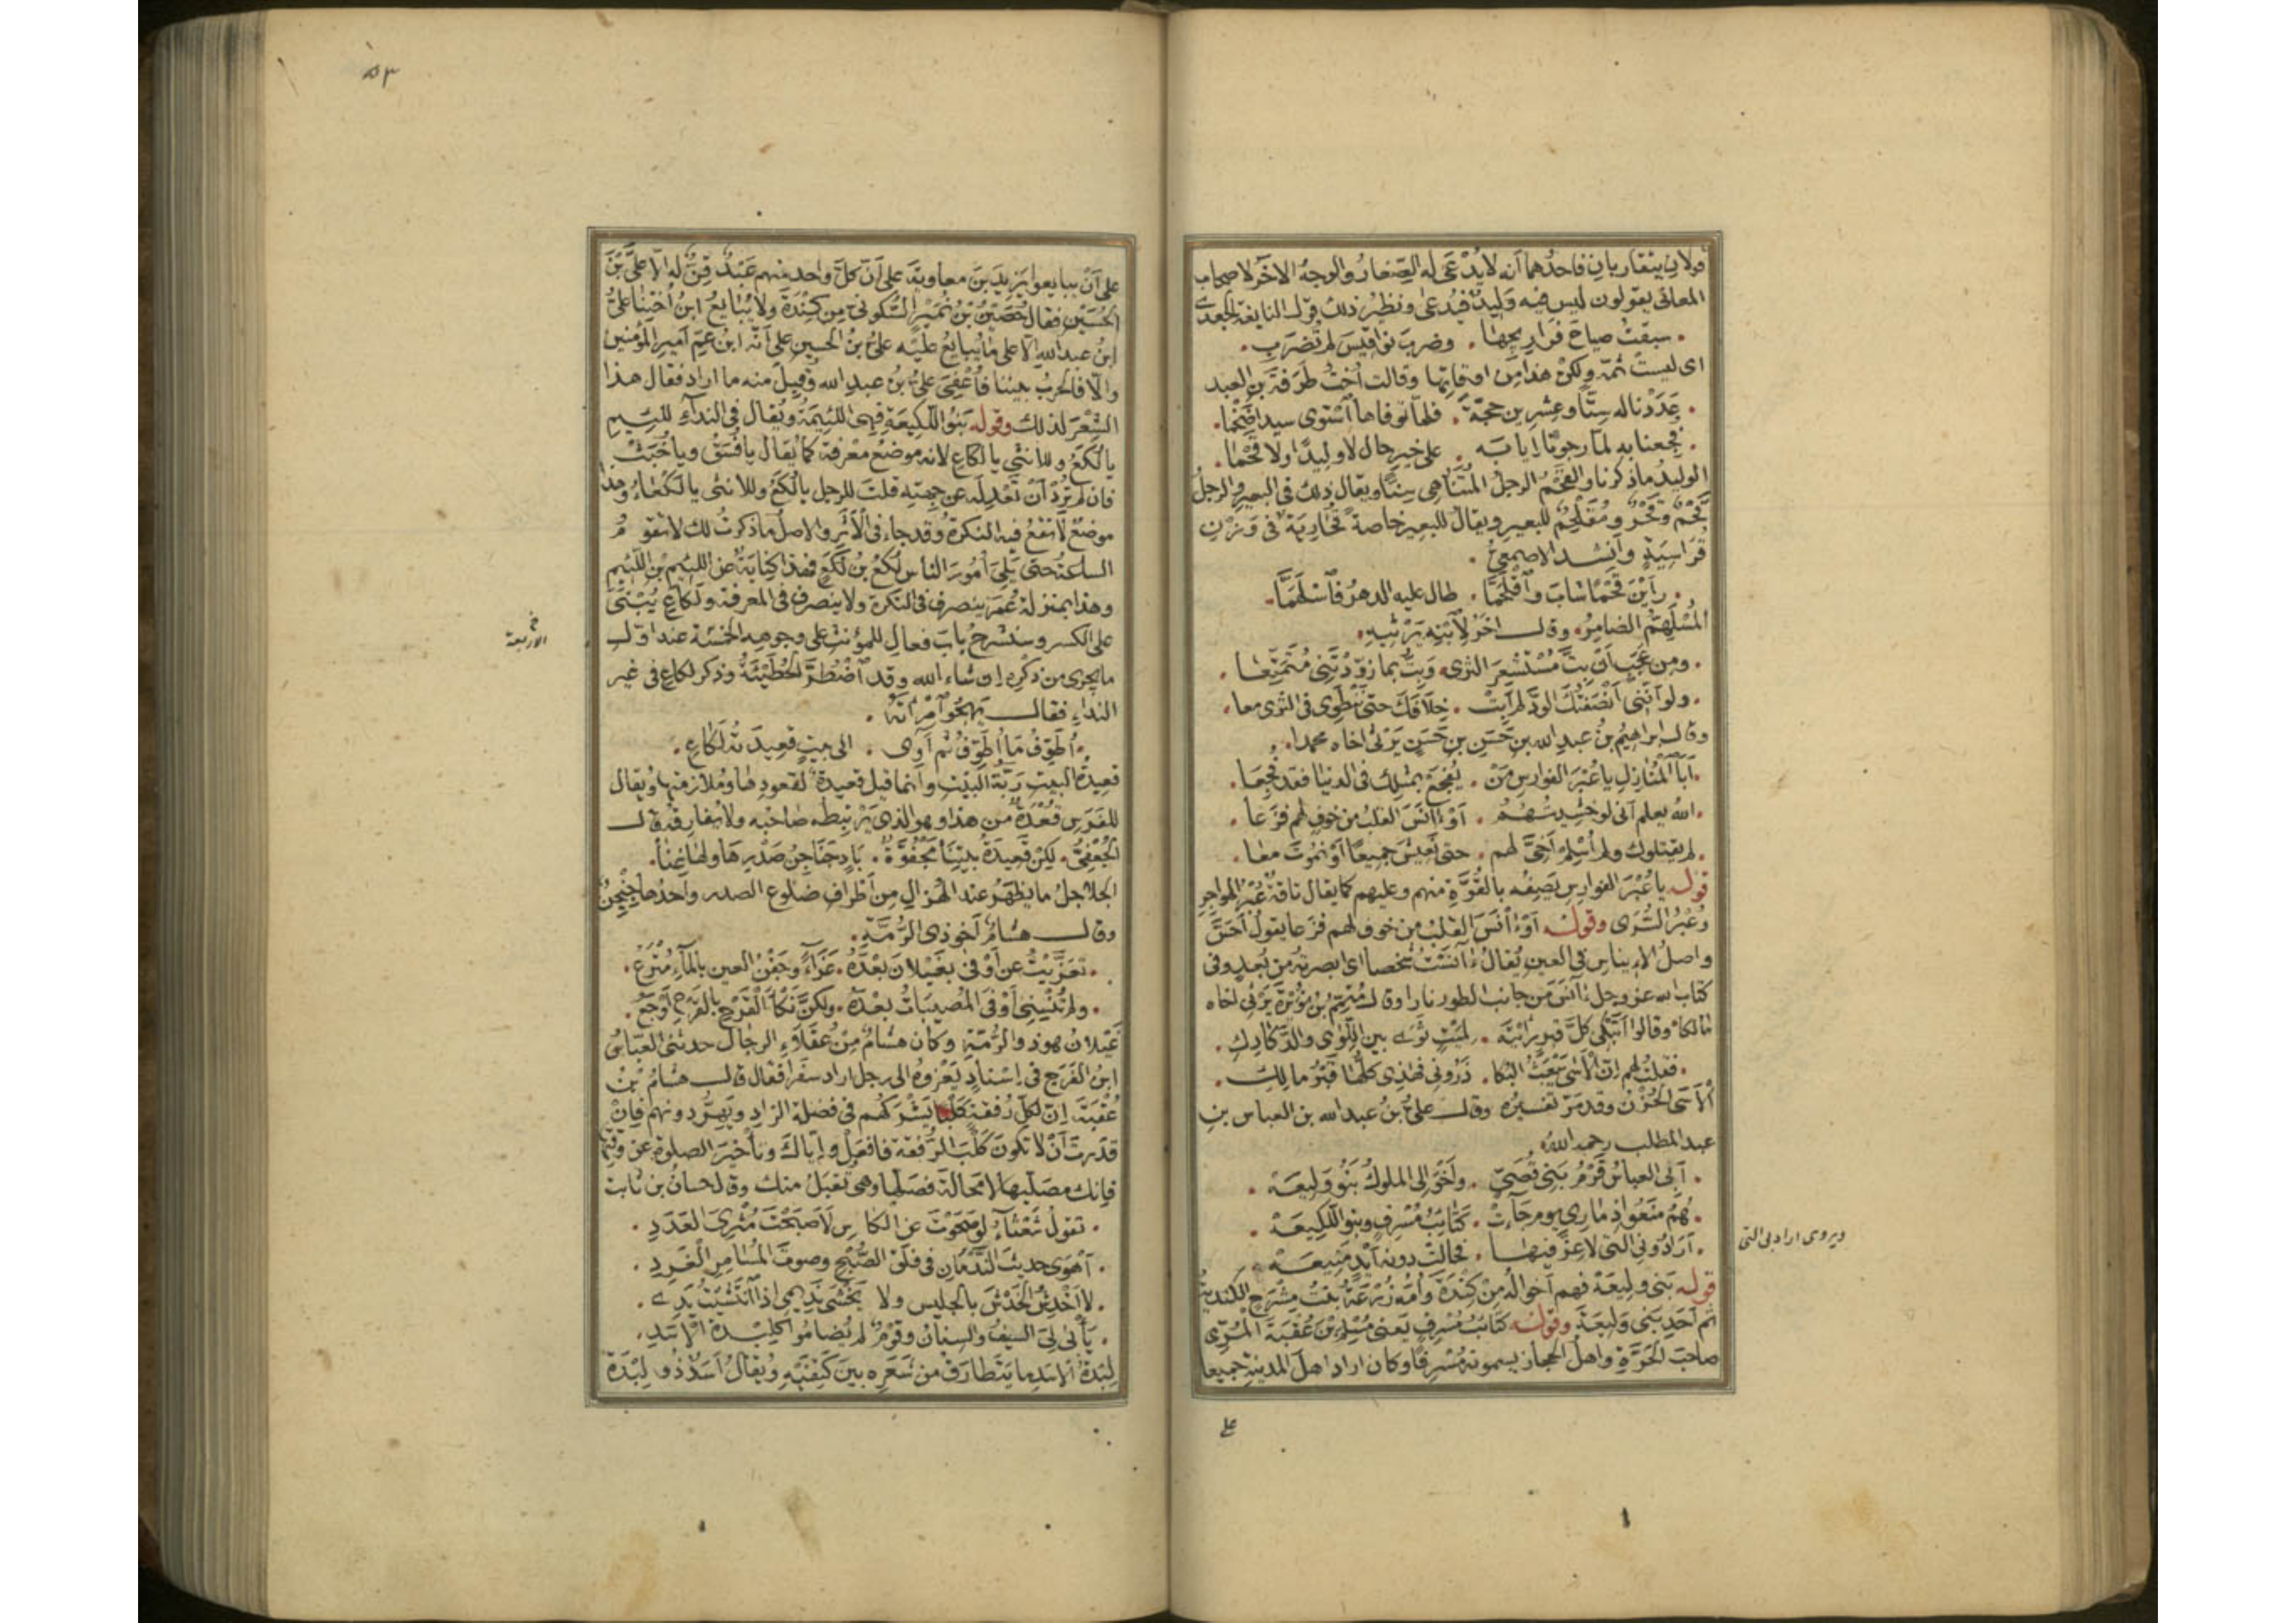 قولان يتقاربان فاحدهما أنه لا يُدْعَى له الصغار والوجه الآخر لاصحاب
المعانى يقولون ليس فيه وليد فيدعى ونظير ذلك قول النابغة الجعدى
سبقتُ صياحَ فراريجها وضربَ نواقيسَ لم تُضرَبِ
اى ليست ثمّة ولكن هذا من اوقاتها وقالت أختُ طَرَفة بن العبد
عَدَدْنا له ستًّا وعشرين حجّةً فلمّا توفاها استوى سيدا ضخما
فُجعنا به لمّا رجونا إيابَه على خير حال لا وليدًا ولا قحما
الوليد ما ذكرنا والقَحْم الرجلُ المُتَناهى سِنًّا ويقال ذلك فى البعير والرجل
قَحْمٌ وقَحْرٌ ومُقْلَحِمٌّ للبعير ويقال للبعير خاصة قُحارِيَةٌ فى وزن
قُراسِيَةٍ وانشد الاصمعىّ
رأين قحما شاب واقلحمّا طال عليه الدهرُ فاسلهمّا
المُسْلَهِمُّ الضامِرُ وقال آخَرُ لابنه يَرْثيه
ومن عَجَبٍ أن بتَّ مُسْتَشعِرَ الثرى وبتُّ بما زوّدتَنى مُتمتّعا
ولو أنّنى أنصفتُك الودَّ لم أبِتْ خلافَكَ حتى ننطوى فى الثرى معا
وقال ابراهيم بن عبد الله بن حَسَن بن حَسَن يرثى اخاه محمدا
أبا المُنازل يا عُبْرَ الفوارسِ مَنْ يُفجَعْ بمثلك فى الدنيا فقد فُجِعا
اللهُ يعلم أنى لو خشيتُهُمُ أو آنَسَ القلبُ من خوفٍ لهم فزعا
لم يقتلوك ولم أُسْلِمْ أخىّ لهم حتى نعيشَ جميعًا او نموتَ معا
قوله يا عُبْرَ الفوارس يصفه بالقوّة منهم وعليهم كما يقال ناقةٌ عُبْرُ الهواجر
وعُبْرُ السُّرَى وقوله أو آنَسَ القلبُ من خوف لهم فزعا يقول أحَسَّ
واصلُ الإيناس فى العين يُقال آنستُ شخصا اى ابصرته من بُعد وفى
كتاب الله عز وجل آنَسَ من جانب الطور نارا وقال مُتمِّم بن نُوَيْرة يرثى اخاه
مالكا وقالوا أتبكى كلَّ قبرٍ رأيتَه لميتٍ ثوى بين اللّوى والدكادك
فقلتُ لهم إن الأسَى يبعثُ البكا ذَرونى فهذى كلُّها قبرُ مالك
الأسَى الحُزْن وقد مرّ تفسيره وقال علىّ بن عبد الله بن العباس بن
عبد المطلب رحمه الله
أبى العباسُ قَرْمُ بَنى قُصَىٍّ وأخوالى الملوكُ بَنُو وَلِيعَهْ
هُمُ منعوا ذِمارى يوم جاءتْ كتائبُ مُسْرِفٍ وبنو اللّكيعَهْ
أرادونى التى لا عزَّ فيها فحالتْ دونه أيدٍ منيعهْ
ويروى اراد بى التى
قوله بنى وليعة فهم أخواله من كِنْدَة وأمّه زُرْعَة بنتُ مِشْرَحٍ الكندية
ثم أحد بنى وليعة وقوله كتائب مسرف يعنى مُسْلِم بن عُقبة المُرّى
صاحبَ الحَرّة واهلُ الحجاز يسمونه مُسْرِفا وكان اراد اهلَ المدينة جميعا
على
٥٣
على أن يبايعوا يزيد بن معاوية على أن كلّ واحد منهم عَبْدٌ قِنٌّ له الا علىَّ بن
الحُسَيْن فقال حُصَيْن بن نُمَيْر السَّكونىّ من كِنْدَة ولا يُبايع ابنُ أختِنا علىُّ
ابنُ عبد الله الا على ما يُبايع عليه علىُّ بنُ الحسين على أنّه ابنُ عمّ أمير المؤمنين
والّا فالحربُ بيننا فأُعْفِىَ علىُّ بنُ عبد الله وقُبِلَ منه ما اراد فقال هذا
الشِّعْرَ لذلك وقوله بنو اللّكيعة فهى اللئيمة ويُقال فى النداء للئيم
يا لُكَعُ وللانثى يا لَكاعِ لانه موضعُ معرفة كما يُقال يا فُسَقُ ويا خُبَثُ
فان لم تُرِدْ أن تَعْدِلَه عن جهته قلتَ للرجل يا ألْكَعُ وللانثى يا لَكْعاءُ وهذا
موضعٌ لا تقع فيه النكرة وقد جاء فى الأثَر والاصل ما ذكرتُ لك لا تقوم
الساعة حتى يَلِىَ أمورَ الناس لُكَعُ بن لُكَعٍ فهذا كنايةٌ عن اللئيم بن اللئيم
وهذا بمنزلة عُمَرَ ينصرف فى النكرة ولا ينصرف فى المعرفة ولَكاعِ يُبْنَى
على الكسر وسنشرح بابَ فعالِ للمؤنث على وجوهه الخمسة عند اوّل
خ
الاربعة
ما يجرى من ذكره إن شاء الله وقد اضْطُرَّ الحُطَيْئَةُ وذكر لكاع فى غير
النداء فقال يهجو امرأته
أُطَوِّفُ مَا أُطَوِّفُ ثم آوى الى بيتٍ قعيدتُه لَكاعِ
قعيدةُ البيت رَبّةُ البيت وانما قيل قعيدة لقعودها وملازمتها ويُقال
للفرس قُعْدَةٌ من هذا وهو الذى يَرْتَبِطه صاحبه ولا يُفارقه قال
الجُعْفِىُّ لكنْ قعيدةُ بيتِنا مَجْفُوَّةٌ بادٍ جَناجِنُ صَدْرِها ولها غِنا
الجناجن ما يظهر عند الهُزال من أطراف ضلوع الصدر واحدها جِنْجِنٌ
وقال هشام أخو ذى الرُّمّة
تعزّيتُ عن أوْفى بغَيْلانَ بعدَه عَزاءً وجَفْنُ العين بالماء مُتْرَعُ
ولم تُنْسِنى أوْفى المُصيباتُ بعدَه ولكنّ نَكْأَ القَرْح بالقَرْح أوجَعُ
غَيْلان هو ذو الرُّمّة وكان هشام من عُقلاء الرجال حدثنى العبّاس
ابن الفَرَج فى إسنادٍ يَعْزوه الى رجل اراد سفرا فقال قال هشام بن
عُقْبَة إنّ لكل رُفقةٍ كلبا يَشْرَكُهم فى فضلة الزاد ويَهِرُّ دونهم فإن
قدرتَ أن لا تكون كلبَ الرُّفقة فافعل وإيّاك وتأخيرَ الصلوة عن وقتها
فإنك مصلّيها لا محالة فصلِّها وهى تُقْبَلُ منك وقال حسان بن ثابت
تقولُ شَعْثاءُ لو صَحَوْتَ عن الكاس لأصبحتَ مُثْرِىَ العَدَدِ
أهْوَى حديثَ النَّدْمانِ فى فَلَقِ الصُّبْحِ وصوتَ المُسامِرِ الغَرِدِ
لا أخْدِشُ الخَدْشَ بالجليس ولا يَخْشى نديمى إذا انْتَشَيْتُ يدى
يأبى لِىَ السيفُ والسِنانُ وقومٌ لم يُضاموا كلِبْدَةِ الأسَدِ
لِبْدَةُ الاسد ما يَتَطارَقُ من شَعَره بين كَتِفَيْه ويُقالُ أسَدٌ ذو لِبْدَة